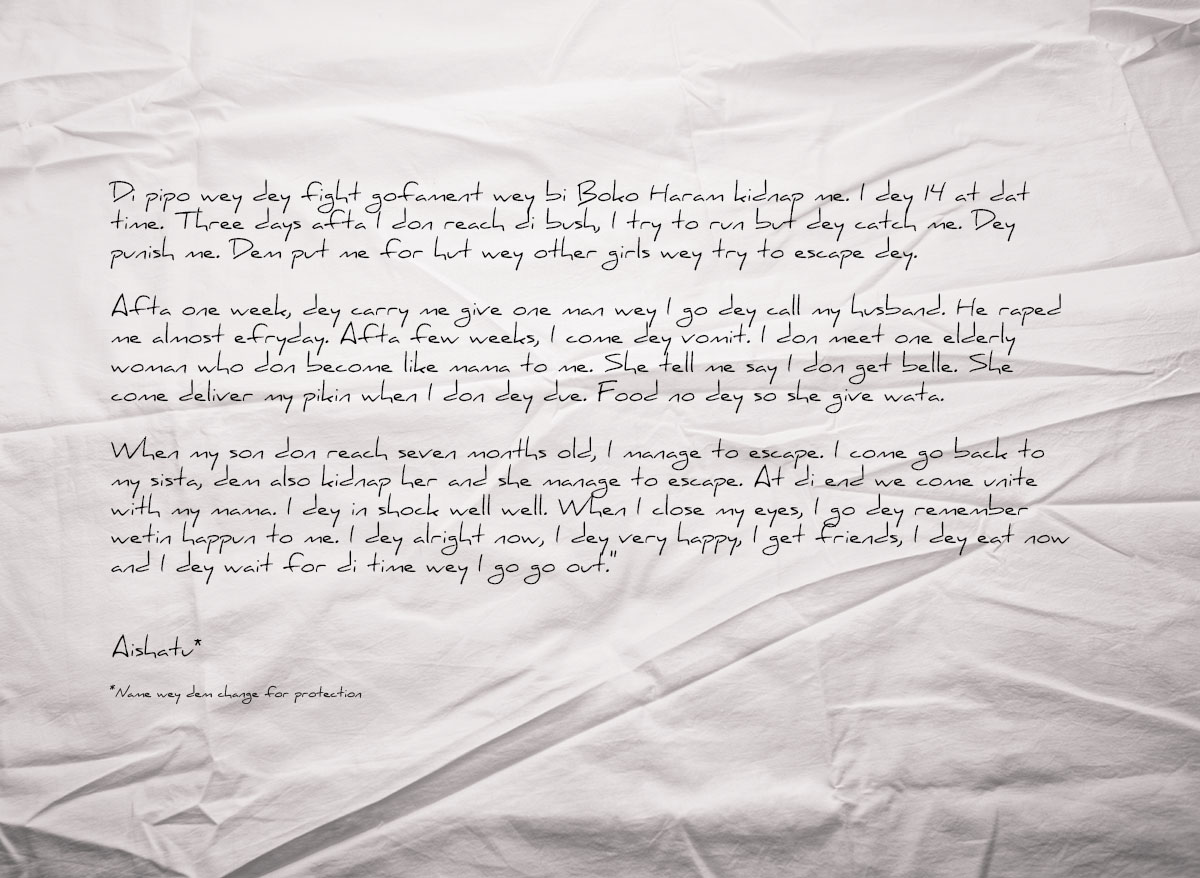 Di pipo wey dey fight gofament wey bi Boko Haram kidnap me. I dey 14 at dat
time. Three days afta I don reach di bush, I try to run but dey catch me. Dey
punish me. Dem put me for hut wey other girls wey try to escape dey.
Afta one week, dey carry me give one man wey I go dey call my husband. He raped
me almost efryday. Afta few weeks, I come dey vomit. I don meet one elderly
woman who don become like mama to me. She tell me say I don get belle. She
come deliver my pikin when I don dey due. Food no dey so she give wata.
When my son don reach seven months old, I manage to escape. I come go back to
my sista, dem also kidnap her and she manage to escape. At di end we come unite
with my mama. I dey in shock well well. When I close my eyes, I go dey remember
wetin happun to me. I dey alright now, I dey very happy, I get friends, I dey eat now
and I dey wait for di time wey I go go out."
Aishatu*
*Name wey dem change for protection